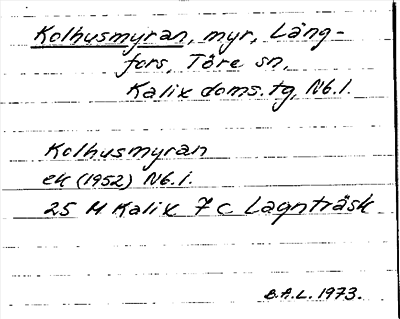 Kolhusmyran, myr, Lång-
fors, Töre sn,
Kalix doms.tg, Nb.l.
Kolhusmyran
ek (1952) Nb.l.
25 M Kalix 7c Lagnträsk
B.A.L. 1973.